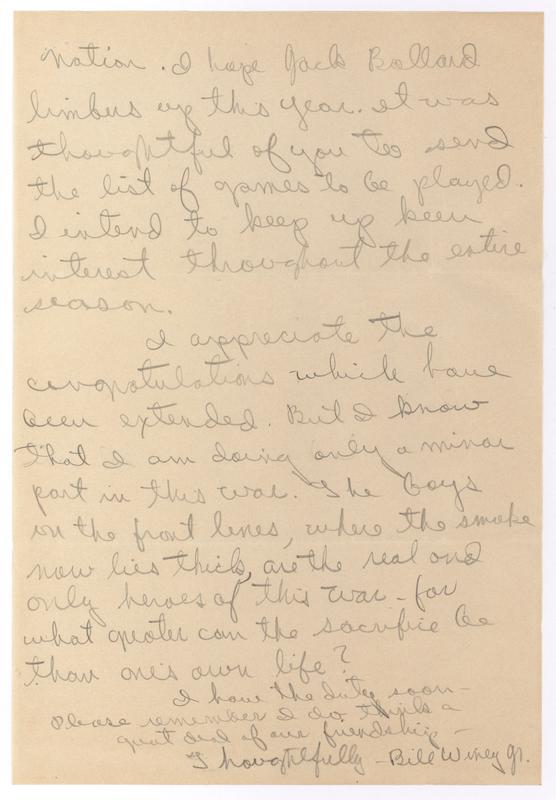 nation. I hope Jack Bollard
limbers up this year. It was
thoughtful of you to send
the list of games to be played.
I intend to keep up keen
interest throughout the entire
season.
I appreciate the
congratulations which have
been extended. But I know
that I am doing only a minor
part in this war. The boys
on the front lines, where the smoke
now lies thick, are the real and
only heroes of this war - for
what greater can the sacrifice be
than one's own life?
I have the duty soon -
Please remember I do think a
great deal of our friendship -
Thoughtfully - Bill Winey Jr.